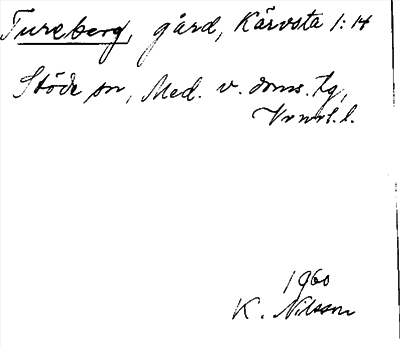 Tureberg, gård, Kärvsta 1:14
Stöde sn, Med. v. doms. tg,
Vrnrl. l.
1960
K. Nilsson